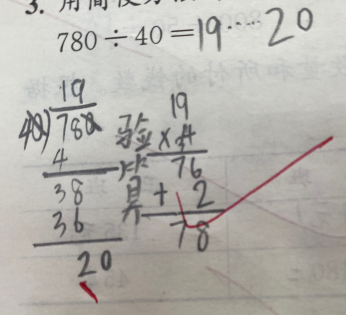 3. 用简便方
780÷40=19……20
19
40)780
4
38
36
20
验算
19
×4
76
+ 2
78